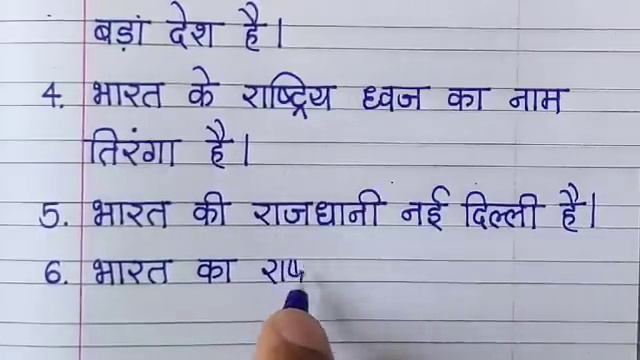 बड़ां देश है।
4. भारत के राष्ट्रिय ध्वज का नाम
तिरंगा है।
5. भारत की राजधानी नई दिल्ली है।
6. भारत का